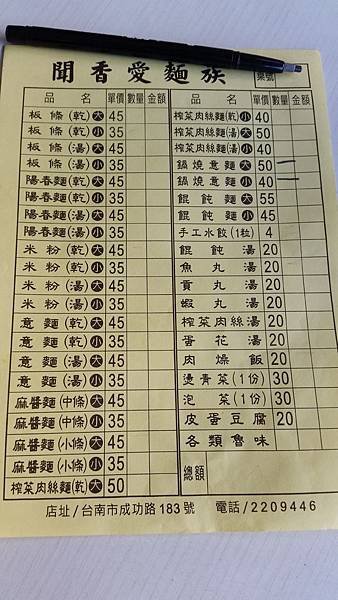 聞香愛麵族 桌號
品名 單價 數量 金額
板條(乾)大 45
板條(乾)小 35
板條(湯)大 45
板條(湯)小 35
陽春麵(乾)大 45
陽春麵(乾)小 35
陽春麵(湯)大 45
陽春麵(湯)小 35
米粉(乾)大 45
米粉(乾)小 35
米粉(湯)大 45
米粉(湯)小 35
意麵(乾)大 45
意麵(乾)小 35
意麵(湯)大 45
意麵(湯)小 35
麻醬麵(中條)大 45
麻醬麵(中條)小 35
麻醬麵(小條)大 45
麻醬麵(小條)小 35
榨菜肉絲麵(乾)大 50
品名 單價 數量 金額
榨菜肉絲麵(乾)小 40
榨菜肉絲麵(湯)大 50
榨菜肉絲麵(湯)小 40
鍋燒意麵大 50
鍋燒意麵小 40
餛飩麵大 55
餛飩麵小 45
手工水餃(1粒) 4
餛飩湯 20
魚丸湯 20
貢丸湯 20
蝦丸湯 20
榨菜肉絲湯 20
蛋花湯 20
肉燥飯 20
燙青菜(1份) 30
泡菜(1份) 30
皮蛋豆腐 20
各類魯味
總額
店址/台南市成功路183號 電話/2209446